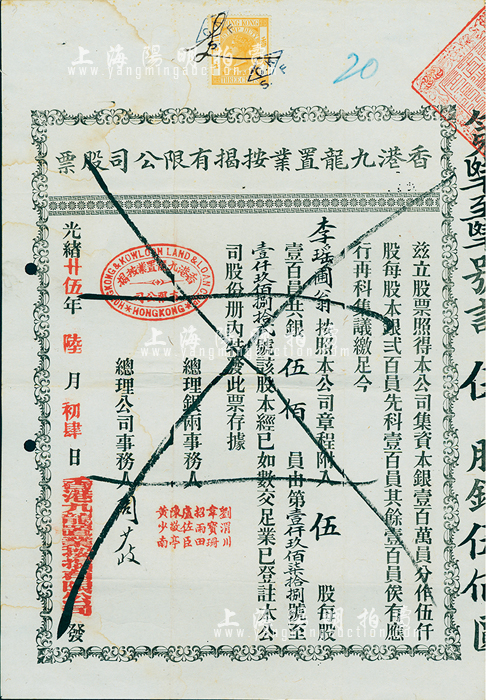 香港九龍置業按揭有限公司股票
茲立股票照得本公司集資本銀壹百萬員分作伍仟
股每股本銀弍百員先科壹百員其餘壹百員俟有應
行再科集議繳足今
李瑶圃翁按照本公司章程附入伍股每股
壹百員共銀伍佰員由第壹仟玖佰柒拾捌號至
壹仟玖佰捌拾弍號該股本經已如數交足業已登註本公
司股份册內特發此票存據
總理銀兩事務人
總理公司事務人
劉渭川
韋寶珊
招雨田
盧佐臣
陳敬亭
黃少南
光緒廿伍年陸月初肆日香港九龍置業按揭有限公司發
HONGKONG & KOWLOON LAND & LOAN
香港九龍置業按揭
HONGKONG
HONG KONG
20
上海陽明拍賣
www.yangmingauction.com
上海陽明拍賣
www.yangmingauction.com